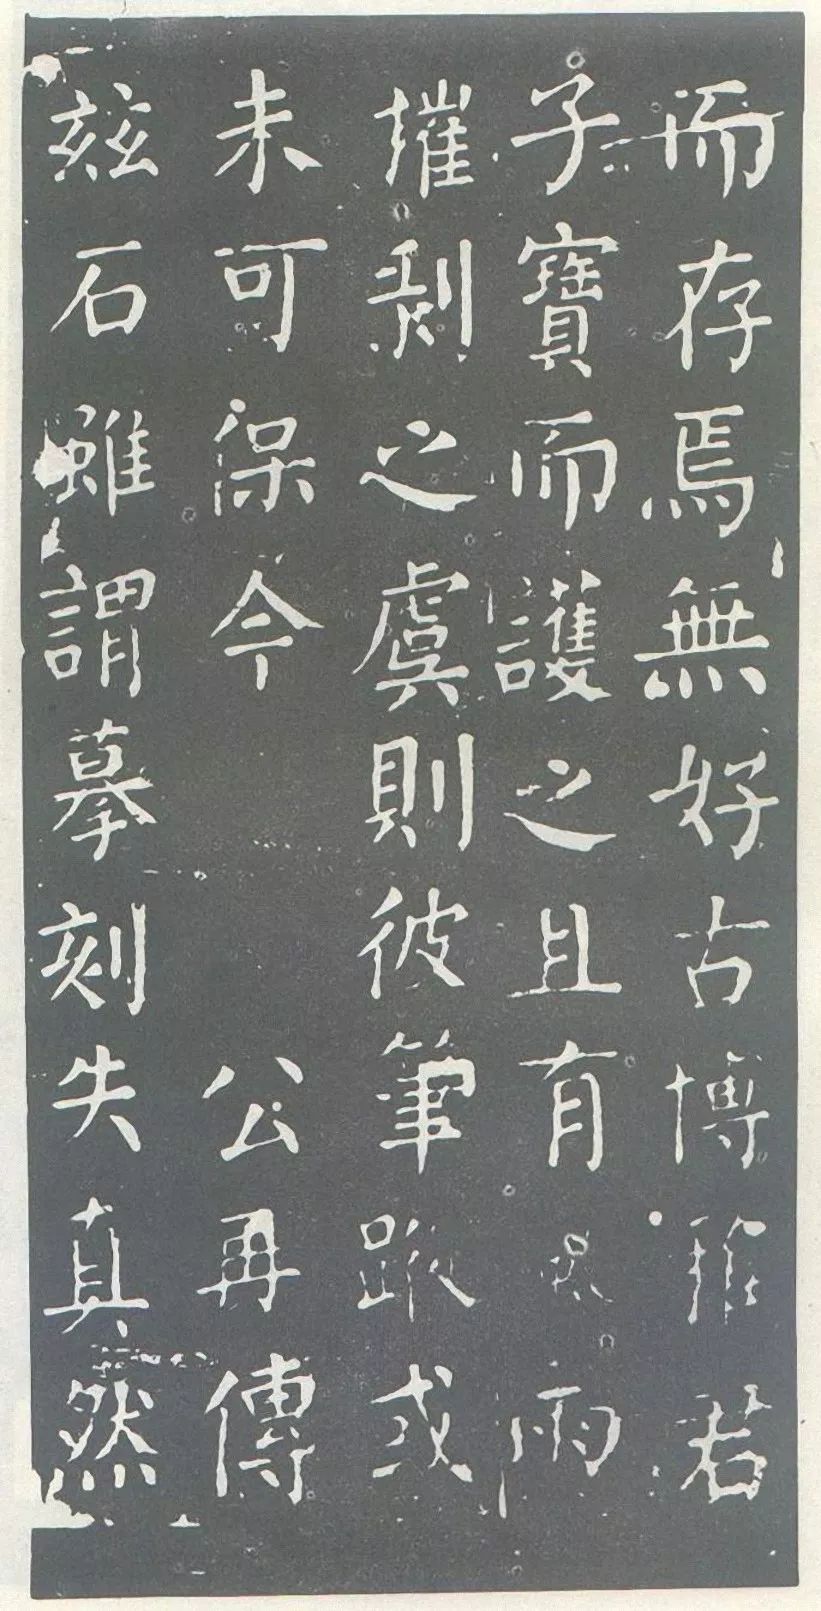 而存焉無好古博雅君
子寶而護之且有雨
摧剥之虞則彼筆蹤或
未可保今　公再傳
兹石雖謂摹刻失真然